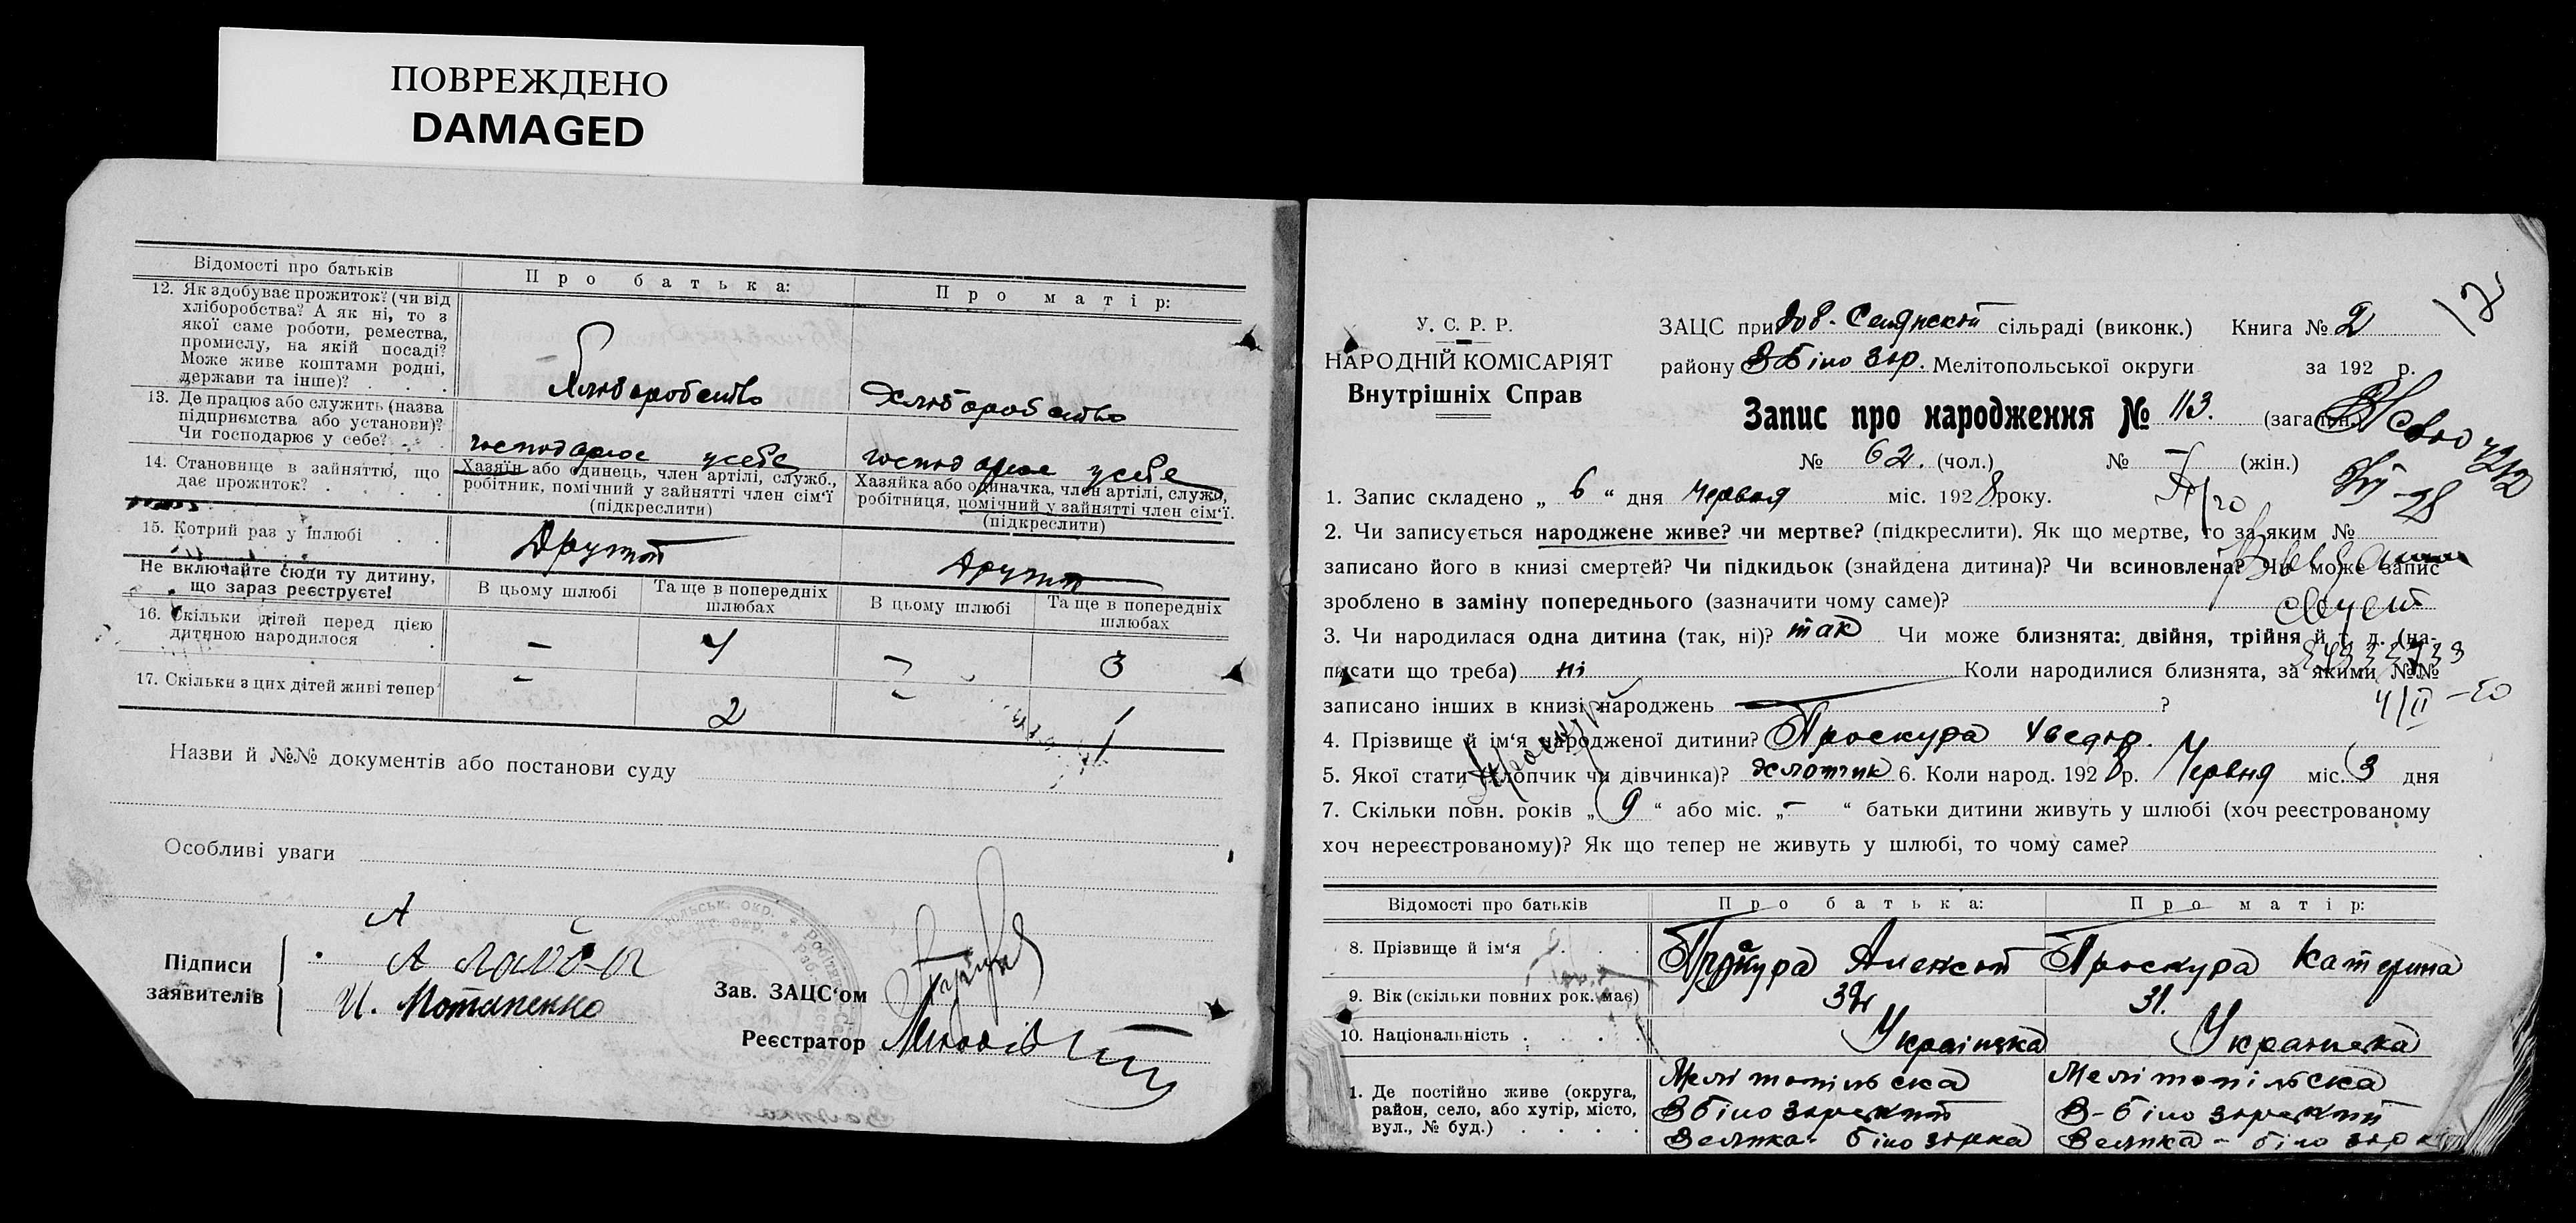 ПОВРЕЖДЕНО
DAMAGED
Відомості про батьків
Про батька:
Про матір:
12. Як здобуває прожиток? (чи від
хліборобства? А як ні, то з
якої саме роботи, ремества,
промислу, на якій посаді?
Може живе коштами родні,
держави та інше)? . . .
Хлиборобство
Хлиборобство
13. Де працює або служить (назва
підприємства або установи)?
Чи господарює у себе? . .
господарює у себе
господарює у себе
14. Становище в зайняттю, що
дає прожиток? . . . .
Хазяїн або одинець, член артілі, служб.,
робітник, помічний у зайнятті член сім'ї
(підкреслити)
Хазяйка або одиначка, член артілі, служб.,
робітниця, помічний у зайнятті член сім'ї.
(підкреслити)
15. Котрий раз у шлюбі . .
Другий
Другий
Не включайте сюди ту дитину,
що зараз реєструєте!
В цьому шлюбі
Та ще в попередніх
шлюбах
В цьому шлюбі
Та ще в попередніх
шлюбах
16. Скільки дітей перед цією
дитиною народилося .
– 4 – 3
17. Скільки з цих дітей живі тепер
– 2 – 1
Назви й №№ документів або постанови суду
Особливі уваги
Підписи
заявителів
А
И. Потапенко
Зав. ЗАЦС'ом
Реєстратор
12
У. С. Р. Р.
НАРОДНІЙ КОМІСАРІЯТ
Внутрішніх Справ
ЗАЦС при сільраді (виконк.) Книга № 2
району В Біло Зор. Мелітопольської округи за 192 р.
Запис про народження № 113. (загальн.)
№ 62. (чол.) № – (жін.)
1. Запис складено „ 6 “ дня Червня міс. 1928 року.
2. Чи записується народжене живе? чи мертве? (підкреслити). Як що мертве, то за яким №
записано його в книзі смертей? Чи підкидьок (знайдена дитина)? Чи всиновлена? Чи може запис
зроблено в заміну попереднього (зазначити чому саме)?
3. Чи народилася одна дитина (так, ні)? так Чи може близнята: двійня, трійня й т. д. (на-
писати що треба) ні Коли народилися близнята, за якими №№
записано інших в книзі народжень ?
4/II – 50
4. Прізвище й ім'я народженої дитини? Проскура
5. Якої стати (хлопчик чи дівчинка)? хлопчик 6. Коли народ. 1928 р. Червня міс. 3 дня
7. Скільки повн. років „ 9 “ або міс. „ – “ батьки дитини живуть у шлюбі (хоч реєстрованому
хоч нереєстрованому)? Як що тепер не живуть у шлюбі, то чому саме?
Відомості про батьків
Про батька:
Про матір:
8. Прізвище й ім'я . . .
Проскура Алексій
Проскура Катерина
9. Вік (скільки повних рок. має)
31.
10. Національність . . . .
Українска
Українска
1. Де постійно живе (округа,
район, село, або хутір, місто,
вул., № буд.) . . . .
Мелітопільска
В Білозорский
Велика - білозорка
Мелітопільска
В - Білозорский
Велика - білозорк